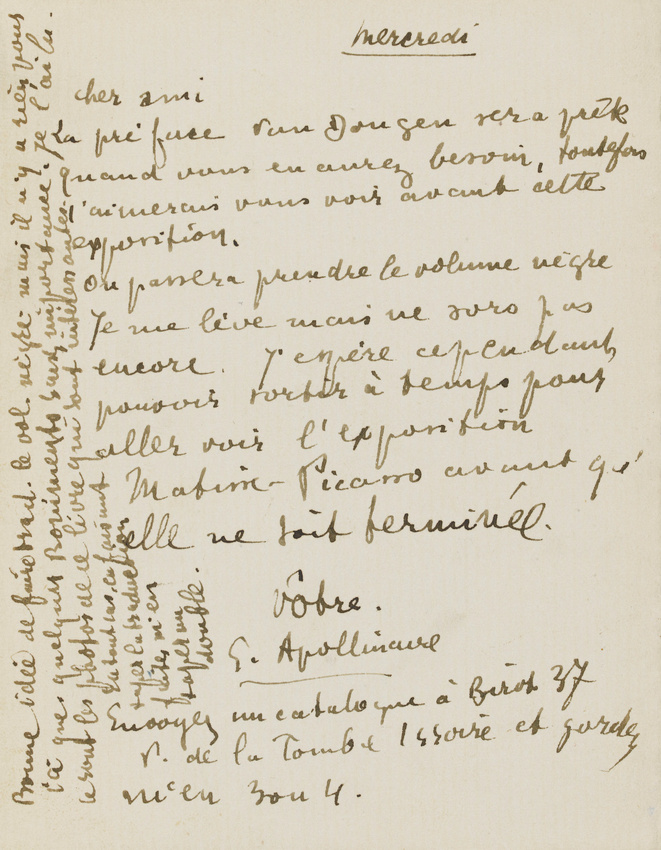 mercredi
cher ami
La préface Van Dongen sera prête
quand vous en aurez besoin, toutefois
j'aimerais vous voir avant cette
exposition.
On passera prendre le volume nègre
Je me lève mais ne sors pas
encore. J'espère cependant
pouvoir sortir à temps pour
aller voir l'exposition
Matisse-Picasso avant qu'
elle ne soit terminée.
Vôtre.
G. Apollinaire
Envoyez un catalogue à Birot 37
r. de la Tombe Issoire et gardez
m'en 3 ou 4.
Bonne idée de faire trad. le vol. nègre mais il n'y a rien vous
là que quelques Boniments sans importance. Je l'ai lu.
ce sont les photos de ce livre qui sont intéressantes.
En tout cas, en faisant
taper la traduction
faites m'en
taper un
double.